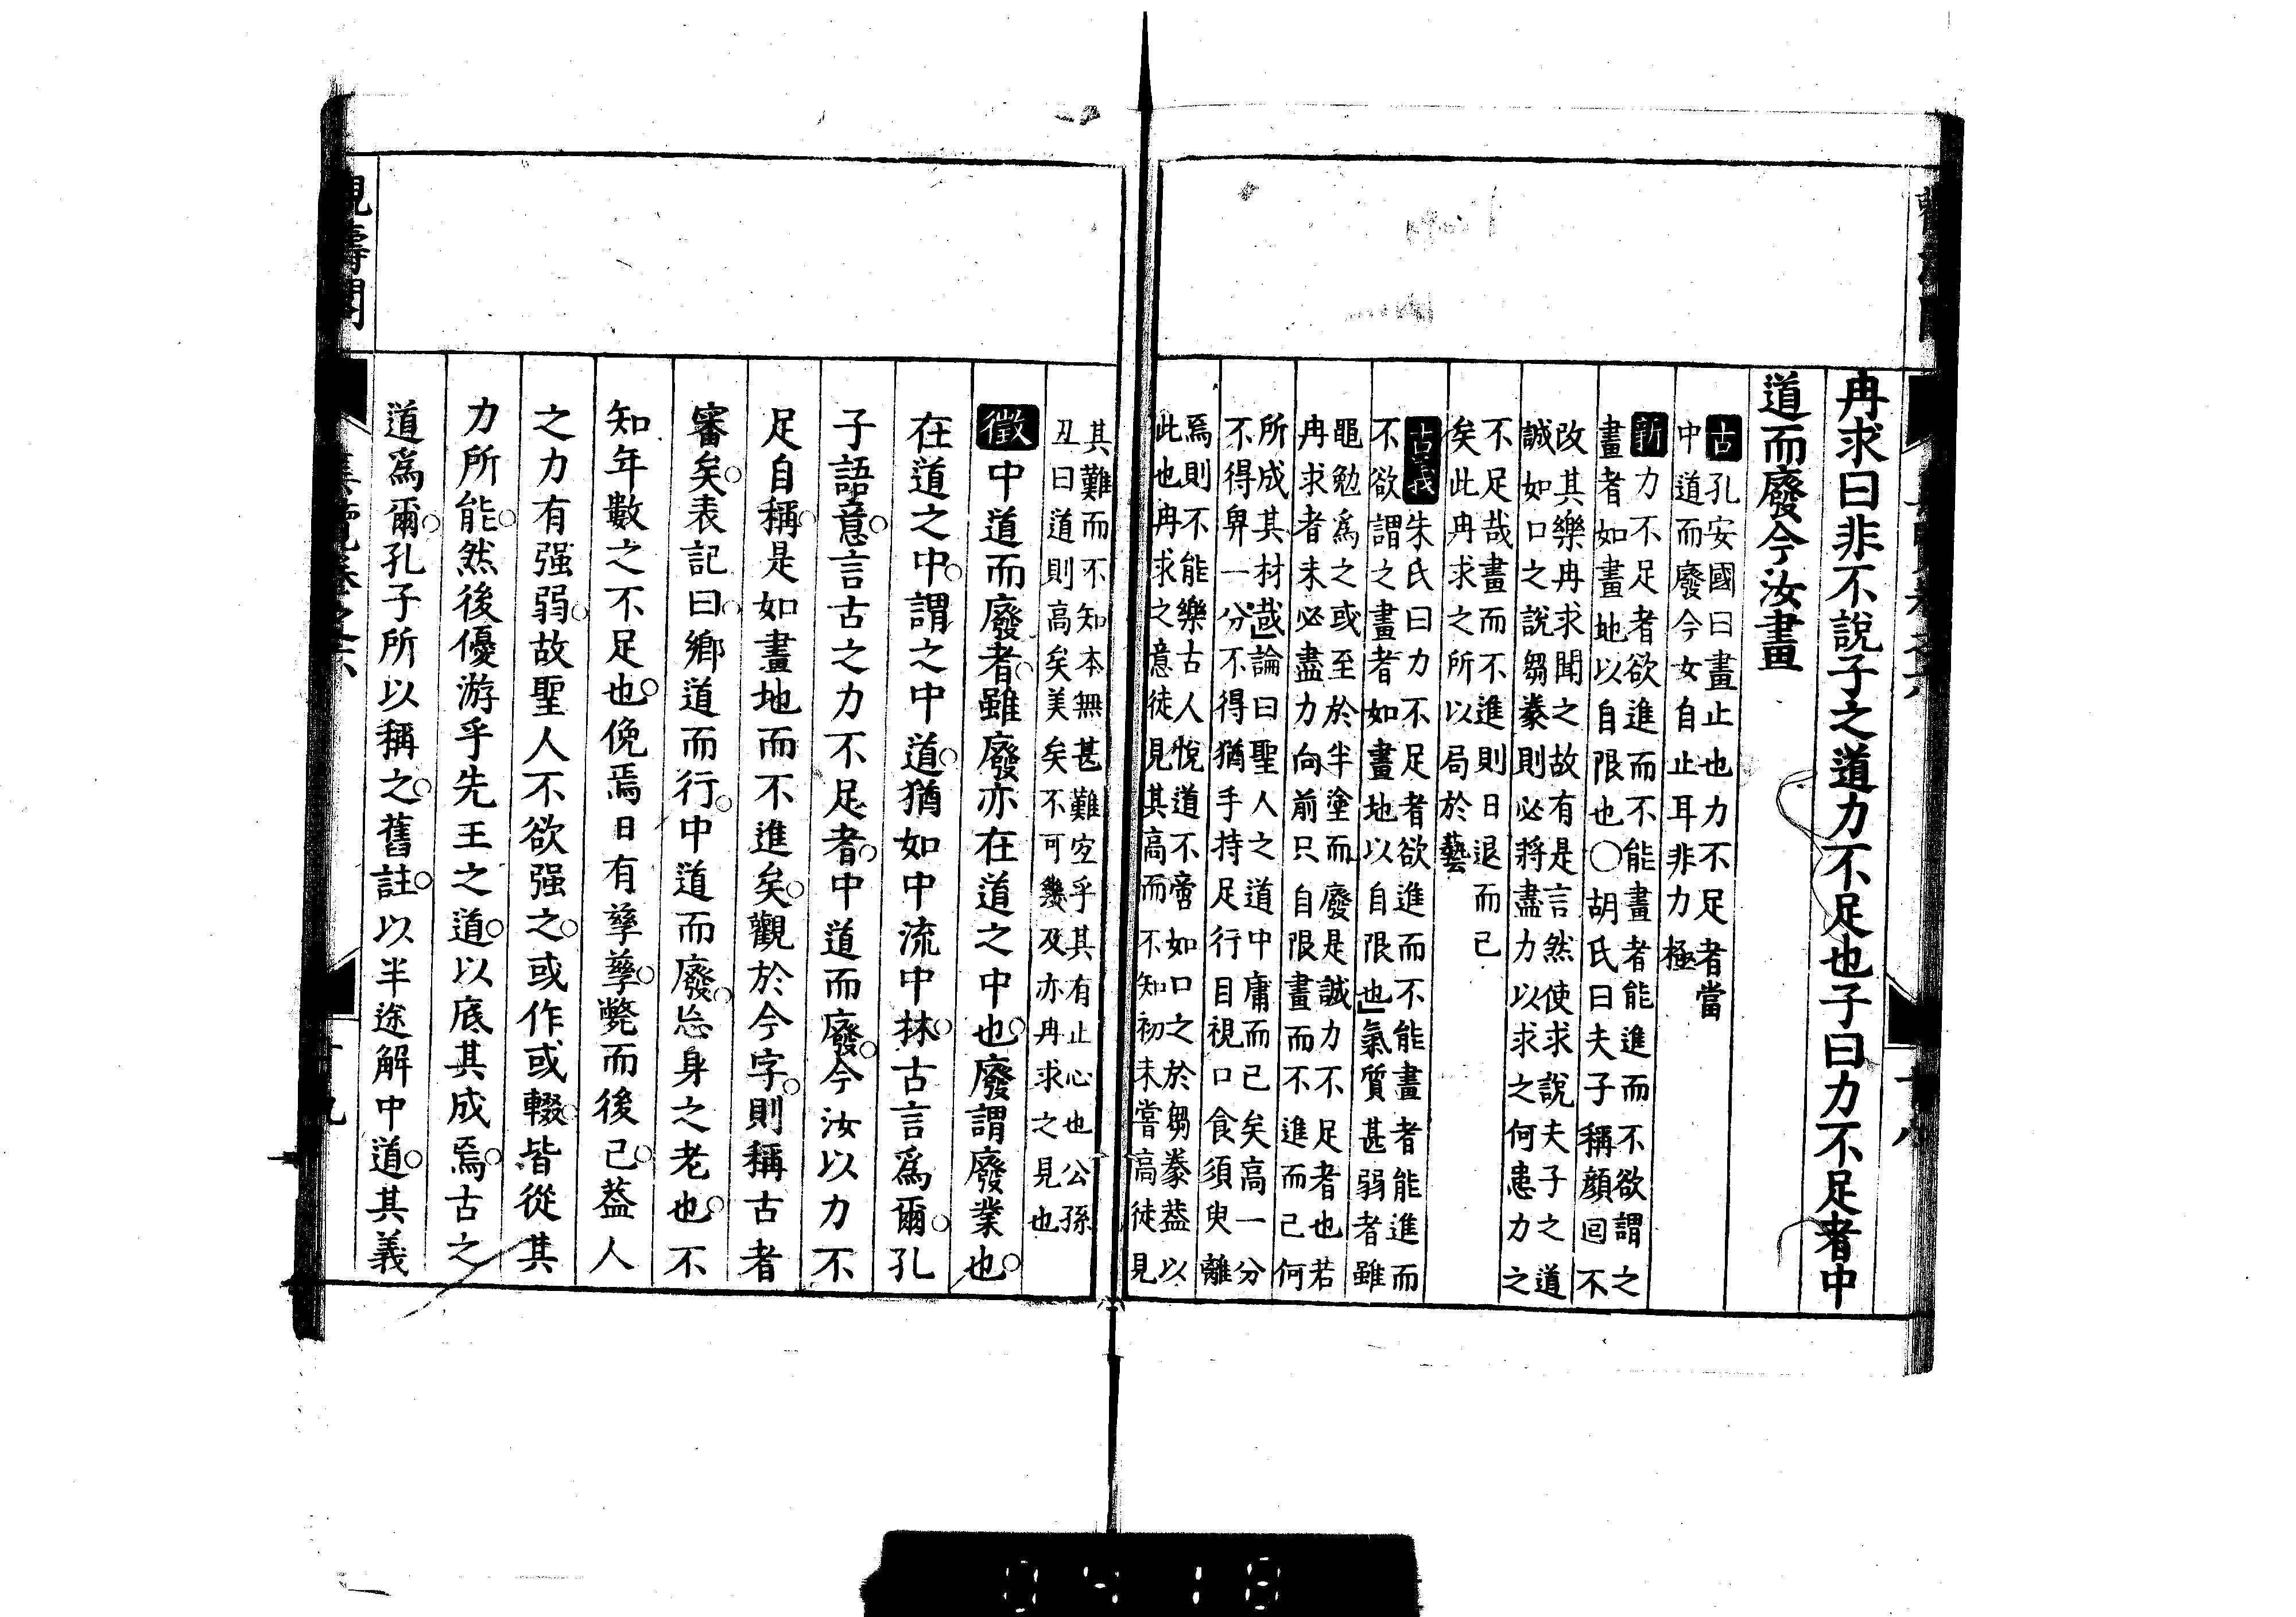 冉求曰非不說子之道力不足也子曰力不足者中
道而廢今汝畫
古孔安國曰畫止也力不足者當
中道而廢今女自止耳非力極
新力不足者欲進而不能畫者能進而不欲謂之
畫者如畫地以自限也〇胡氏曰夫子稱顏回不
改其樂冉求聞之故有是言然使求說夫子之道
誠如口之說芻豢則必將盡力以求之何患力之
不足哉畫而不進則日退而已
矣此冉求之所以局於藝
古義朱氏曰力不足者欲進而不能畫者能進而
不欲謂之畫者如畫地以自限也」氣質甚弱者雖
黽勉爲之或至於半塗而廢是誠力不足者也若
冉求者未必盡力向前只自限畫而不進而已何
所成其材哉」論曰聖人之道中庸而已矣高一分
不得卑一分不得猶手持足行目視口食須臾離
焉則不能樂古人悅道不啻如口之於芻豢葢以
此也冉求之意徒見其高而不知初未嘗高徒見
其難而不知本無甚難宐乎其有止心也公孫
丑曰道則高矣美矣不可幾及亦冉求之見也
徵中道而廢者雖廢亦在道之中也廢謂廢業也
在道之中謂之中道猶如中流中林古言爲爾孔
子語意言古之力不足者中道而廢今汝以力不
足自稱是如畫地而不進矣觀於今字則稱古者
審矣表記曰鄉道而行中道而廢忘身之老也不
知年數之不足也俛焉日有孳孳斃而後已葢人
之力有强弱故聖人不欲强之或作或輟皆從其
力所能然後優游乎先王之道以底其成焉古之
道爲爾孔子所以稱之舊註以半途解中道其義